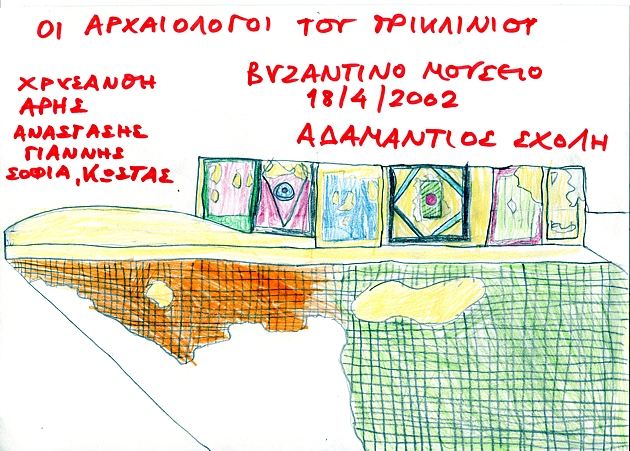 ΟΙ ΑΡΧΑΙΟΛΟΓΟΙ ΤΟΥ ΤΡΙΚΛΙΝΙΟΥ
ΒΥΖΑΝΤΙΝΟ ΜΟΥΣΕΙΟ
18/4/2002
ΑΔΑΜΑΝΤΙΟΣ ΣΧΟΛΗ
ΧΡΥΣΑΝΘΗ
ΑΡΗΣ
ΑΝΑΣΤΑΣΗΣ
ΓΙΑΝΝΗΣ
ΣΟΦΙΑ, ΚΩΣΤΑΣ